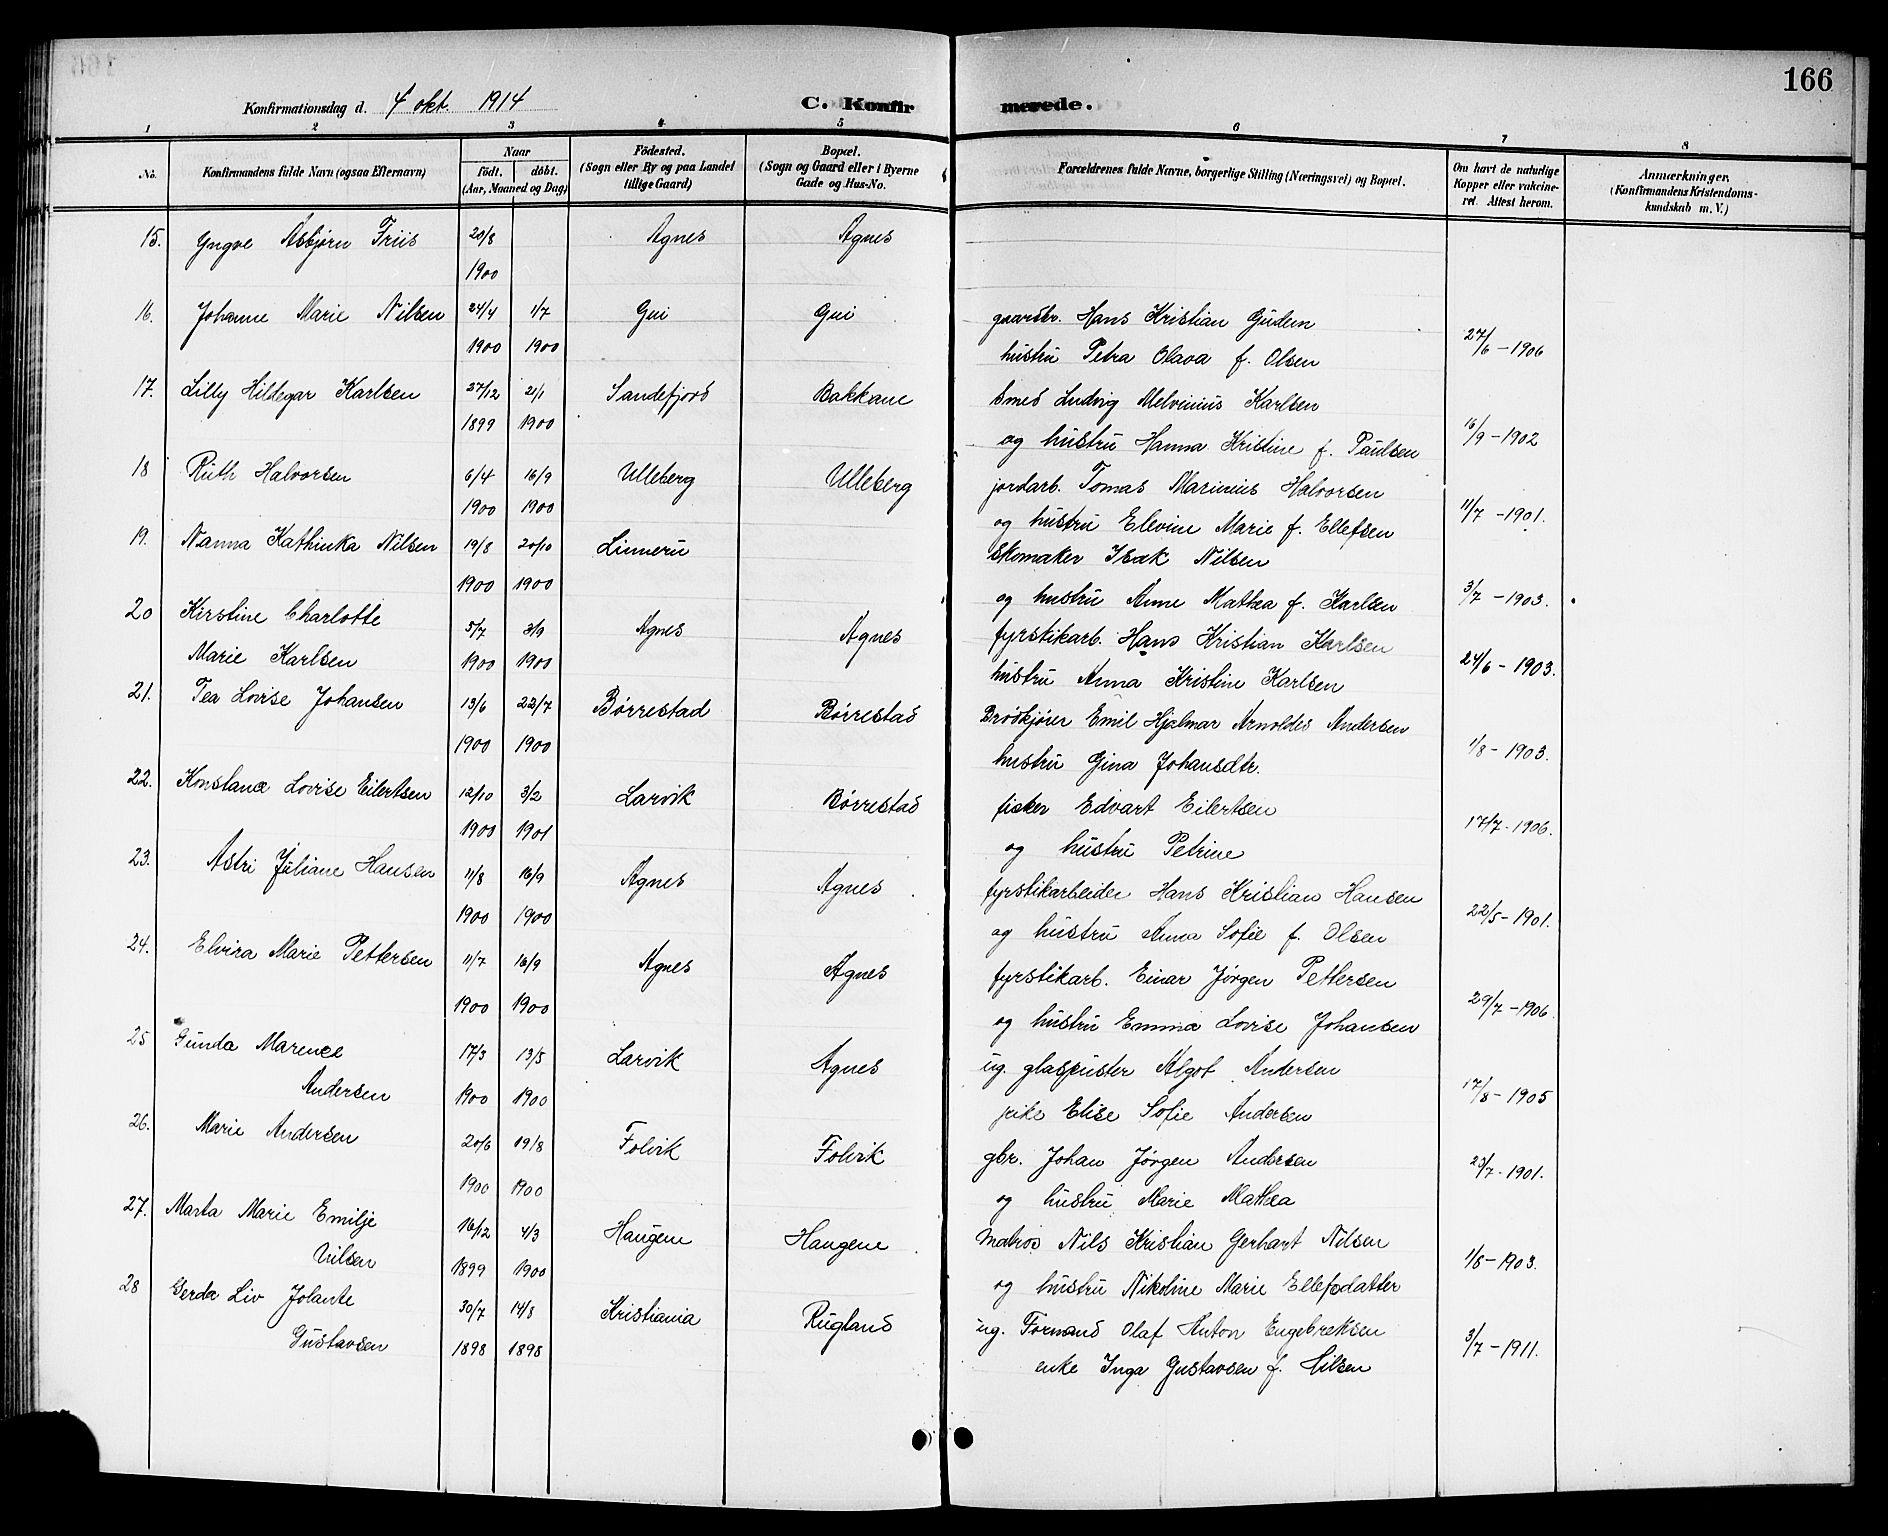 166
Konfirmationsdag d. 4 okt. 1914
C. Konfirmerede.
1 2 3 4 5 6 7 8
No.
Konfirmandens fulde Navn (ogsaa Efternavn)
Naar
födt. döbt.
(Aar, Maaned og Dag)
Födested.
(Sogn eller By og paa Landet
tillige Gaard)
Bopæl.
(Sogn og Gaard eller i Byerne
Gade og Hus-No.
Forældrenes fulde Navne, borgerlige Stilling (Næringsvei) og Bopæl.
Om havt de naturlige
Kopper eller vakcine-
ret. Attest herom.
Anmærkninger.
(Konfirmandens Kristendoms-
kundskab m. V.)
15. Yngve Asbjørn Friis 20/8 Agnes Agnes
1900
16. Johanne Marie Nilsen 24/4 1/7 Gui Gui gaardbr. Hans Kristian Gudem
1900 1900 hustru Petra Olava f. Olsen 27/6 - 1906
17. Lilly Hildegar Karlsen 27/12 21/1 Sandefjord Bakkane Smed Ludvig Melvinius Karlsen
1899 1900 og hustru Hanna Kristine f. Paulsen 16/9 - 1902
18 Ruth Halvorsen 6/4 16/9 Ulleberg Ulleberg jordarb. Tomas Marinius Halvorsen
1900 1900 og hustru Elevine Marie f. Ellefsen 11/7 - 1901.
19. Nanna Kathinka Nilsen 19/8 20/10 Linneru Skomaker Isak Nilsen
1900 1900 og hustru Anne Mathea f. Karlsen 3/7 - 1903.
20 Kirstine Charlotte 5/7 3/9 Agnes Agnes fyrstikarb. Hans Kristian Karlsen
Marie Karlsen 1900 1900 hustru Anna Kristine Karlsen 24/6 - 1903.
21. Tea Lovise Johansen 13/6 22/7 Børrestad Børrestad Brødkjører Emil Hjalmar Arnoldes Andersen
1900 1900 hustru Gina Johansdtr. 1/8 - 1903.
22. Konstance Lovise Eilertsen 12/10 3/2 Larvik Børrestad fisker Edvart Eilertsen
1900 1901 og hustru Petrine 17/7 - 1906.
23. Astri Juliane Hansen 11/8 16/9 Agnes Agnes fyrstikarbeider Hans Kristian Hansen
1900 1900 og hustru Anna Sofie f. Olsen 22/5 - 1901.
24. Elvira Marie Pettersen 11/7 16/9 Agnes Agnes fyrstikarb. Einar Jørgen Pettersen
1900 1900 og hustru Emma Lovise Johansen 29/7 - 1906.
25 Gunda Marence 17/3 13/5 Larvik Agnes ug. glaspuster Algot Andersen
Andersen 1900 1900 pike Elise Sofie Andersen 17/8 - 1905
26. Marie Andersen 20/6 19/8 Folvik Folvik gbr. Johan Jørgen Andersen
1900 1900 og hustru Marie Mathea 23/7 - 1901.
27. Marta Marie Emilje 16/12 4/3 Haugene Haugene Matros Nils Kristian Gerhart Nilsen
Nilsen 1899 1900 og hustru Nikoline Marie Ellefsdatter 1/8 - 1903.
28 Gerda Liv Jolante 30/7 14/8 Kristiania Rugland ug. Formand Olaf Anton Engebretsen
Gustavsen 1898 1898 enke Inga Gustavsen f. Nilsen 3/7 - 1911.